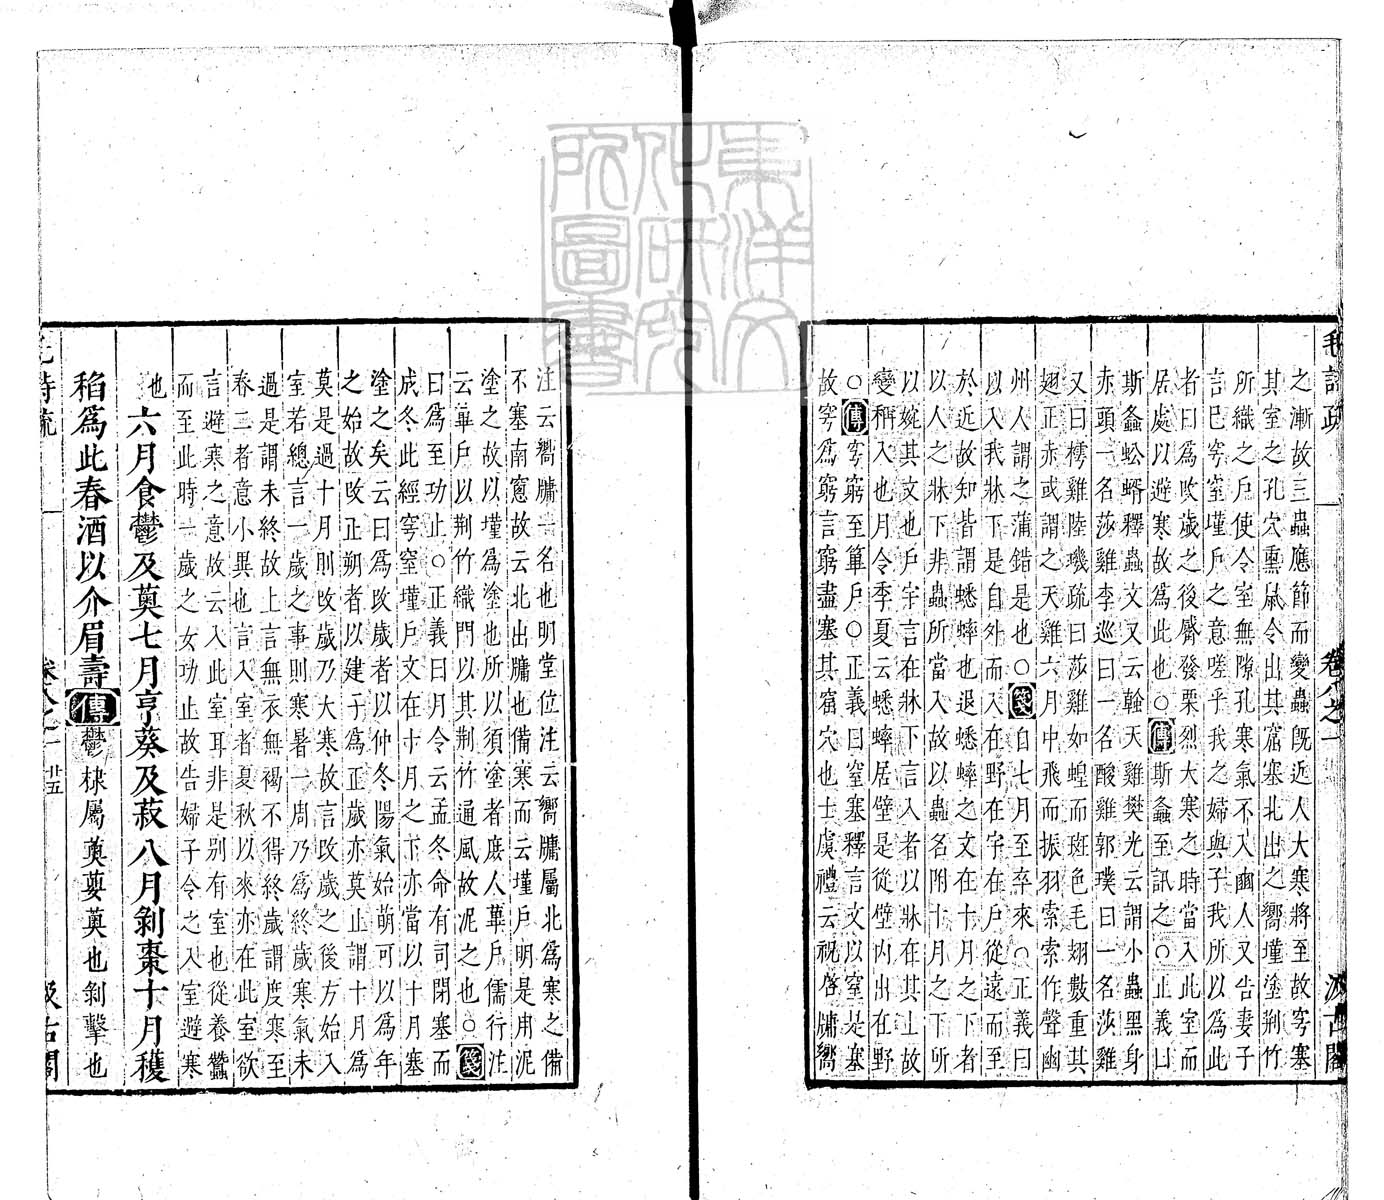 毛詩疏　卷八之一　汲古閣
之漸故三蟲應節而變蟲既近人大寒將至故穹塞
其室之孔穴熏鼠令出其窟塞北出之嚮墐塗荆竹
所織之戶使令室無隙孔寒氣不入豳人又告妻子
言已穹窒墐戶之意嗟乎我之婦與子我所以為此
者曰為改歲之後觱發栗烈大寒之時當入此室而
居處以避寒故為此也○傳斯螽至訊之○正義曰
斯螽蚣蝑釋蟲文又云螒天雞樊光云謂小蟲黑身
赤頭一名莎雞李巡曰一名酸雞郭璞曰一名莎雞
又曰樗雞陸璣疏曰莎雞如蝗而斑色毛翅數重其
翅正赤或謂之天雞六月中飛而振羽索索作聲幽
州人謂之蒲錯是也○箋自七月至卒來○正義曰
以入我牀下是自外而入在野在宇在戶從遠而至
於近故知皆謂蟋蟀也退蟋蟀之文在十月之下者
以人之牀下非蟲所當入故以蟲名附十月之下所
以婉其文也戶宇言在牀下言入者以牀在其上故
變稱入也月令季夏云蟋蟀居壁是從壁內出在野
○傳穹窮至篳戶○正義曰窒塞釋言文以窒是塞
故穹為窮言窮盡塞其窟穴也士虞禮云祝啓牖嚮
注云嚮牖一名也明堂位注云嚮牖屬北為寒之備
不塞南窻故云北出牖也備寒而云墐戶明是用泥
塗之故以墐為塗也所以須塗者庶人篳戶儒行注
云篳戶以荆竹織門以其荆竹通風故泥之也○箋
曰為至功止○正義曰月令云孟冬命有司閉塞而
成冬此經穹窒墐戶文在十月之下亦當以十月塞
塗之矣云曰為改歲者以仲冬陽氣始萌可以為年
之始故改正朔者以建子為正歲亦莫止謂十月為
莫是過十月則改歲乃大寒故言改歲之後方始入
室若總言一歲之事則寒暑一周乃為終歲寒氣未
過是謂未終故上言無衣無褐不得終歲謂度寒至
春二者意小異也言入室者夏秋以來亦在此室欲
言避寒之意故云入此室耳非是別有室也從養蠶
而至此時一歲之女功止故告婦子令之入室避寒
也六月食鬱及薁七月亨葵及菽八月剥棗十月穫
稻為此春酒以介眉壽傳鬱棣屬薁蘡薁也剥擊也
毛詩疏　卷八之一　廿五　汲古閣